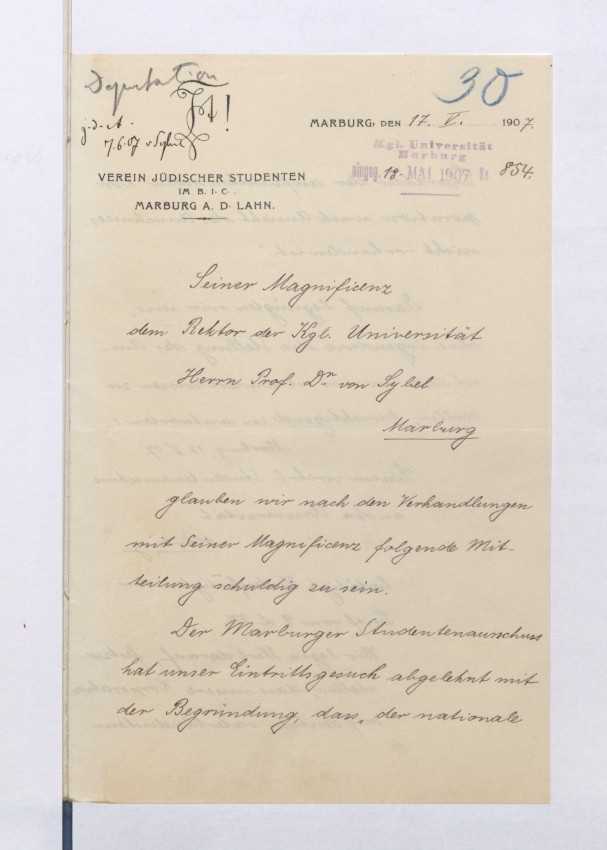 Deputation
30
z. d. A.
7.6.07 v Sybel
MARBURG, DEN 17. V. 1907.
Kgl. Universität
Marburg
eingeg. 18. MAI 1907 No. 854.
VEREIN JÜDISCHER STUDENTEN
IM B. J. C.
MARBURG A. D. LAHN.
Seiner Magnificenz
dem Rektor der Kgl. Universität
Herrn Prof. Dr. von Sybel
Marburg
glauben wir nach den Verhandlungen
mit Seiner Magnificenz folgende Mit-
teilung schuldig zu sein.
Der Marburger Studentenausschuss
hat unser Eintrittsgesuch abgelehnt mit
der Begründung, dass „der nationale